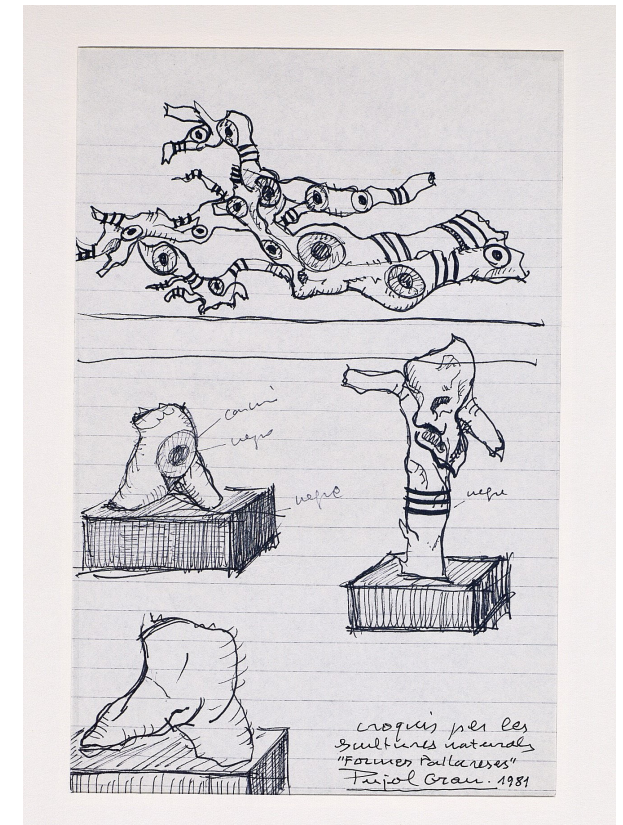 carmí
negre
negre
negre
croquis per les
escultures naturals
"Formes Pallareses"
Pujol Grau. 1981